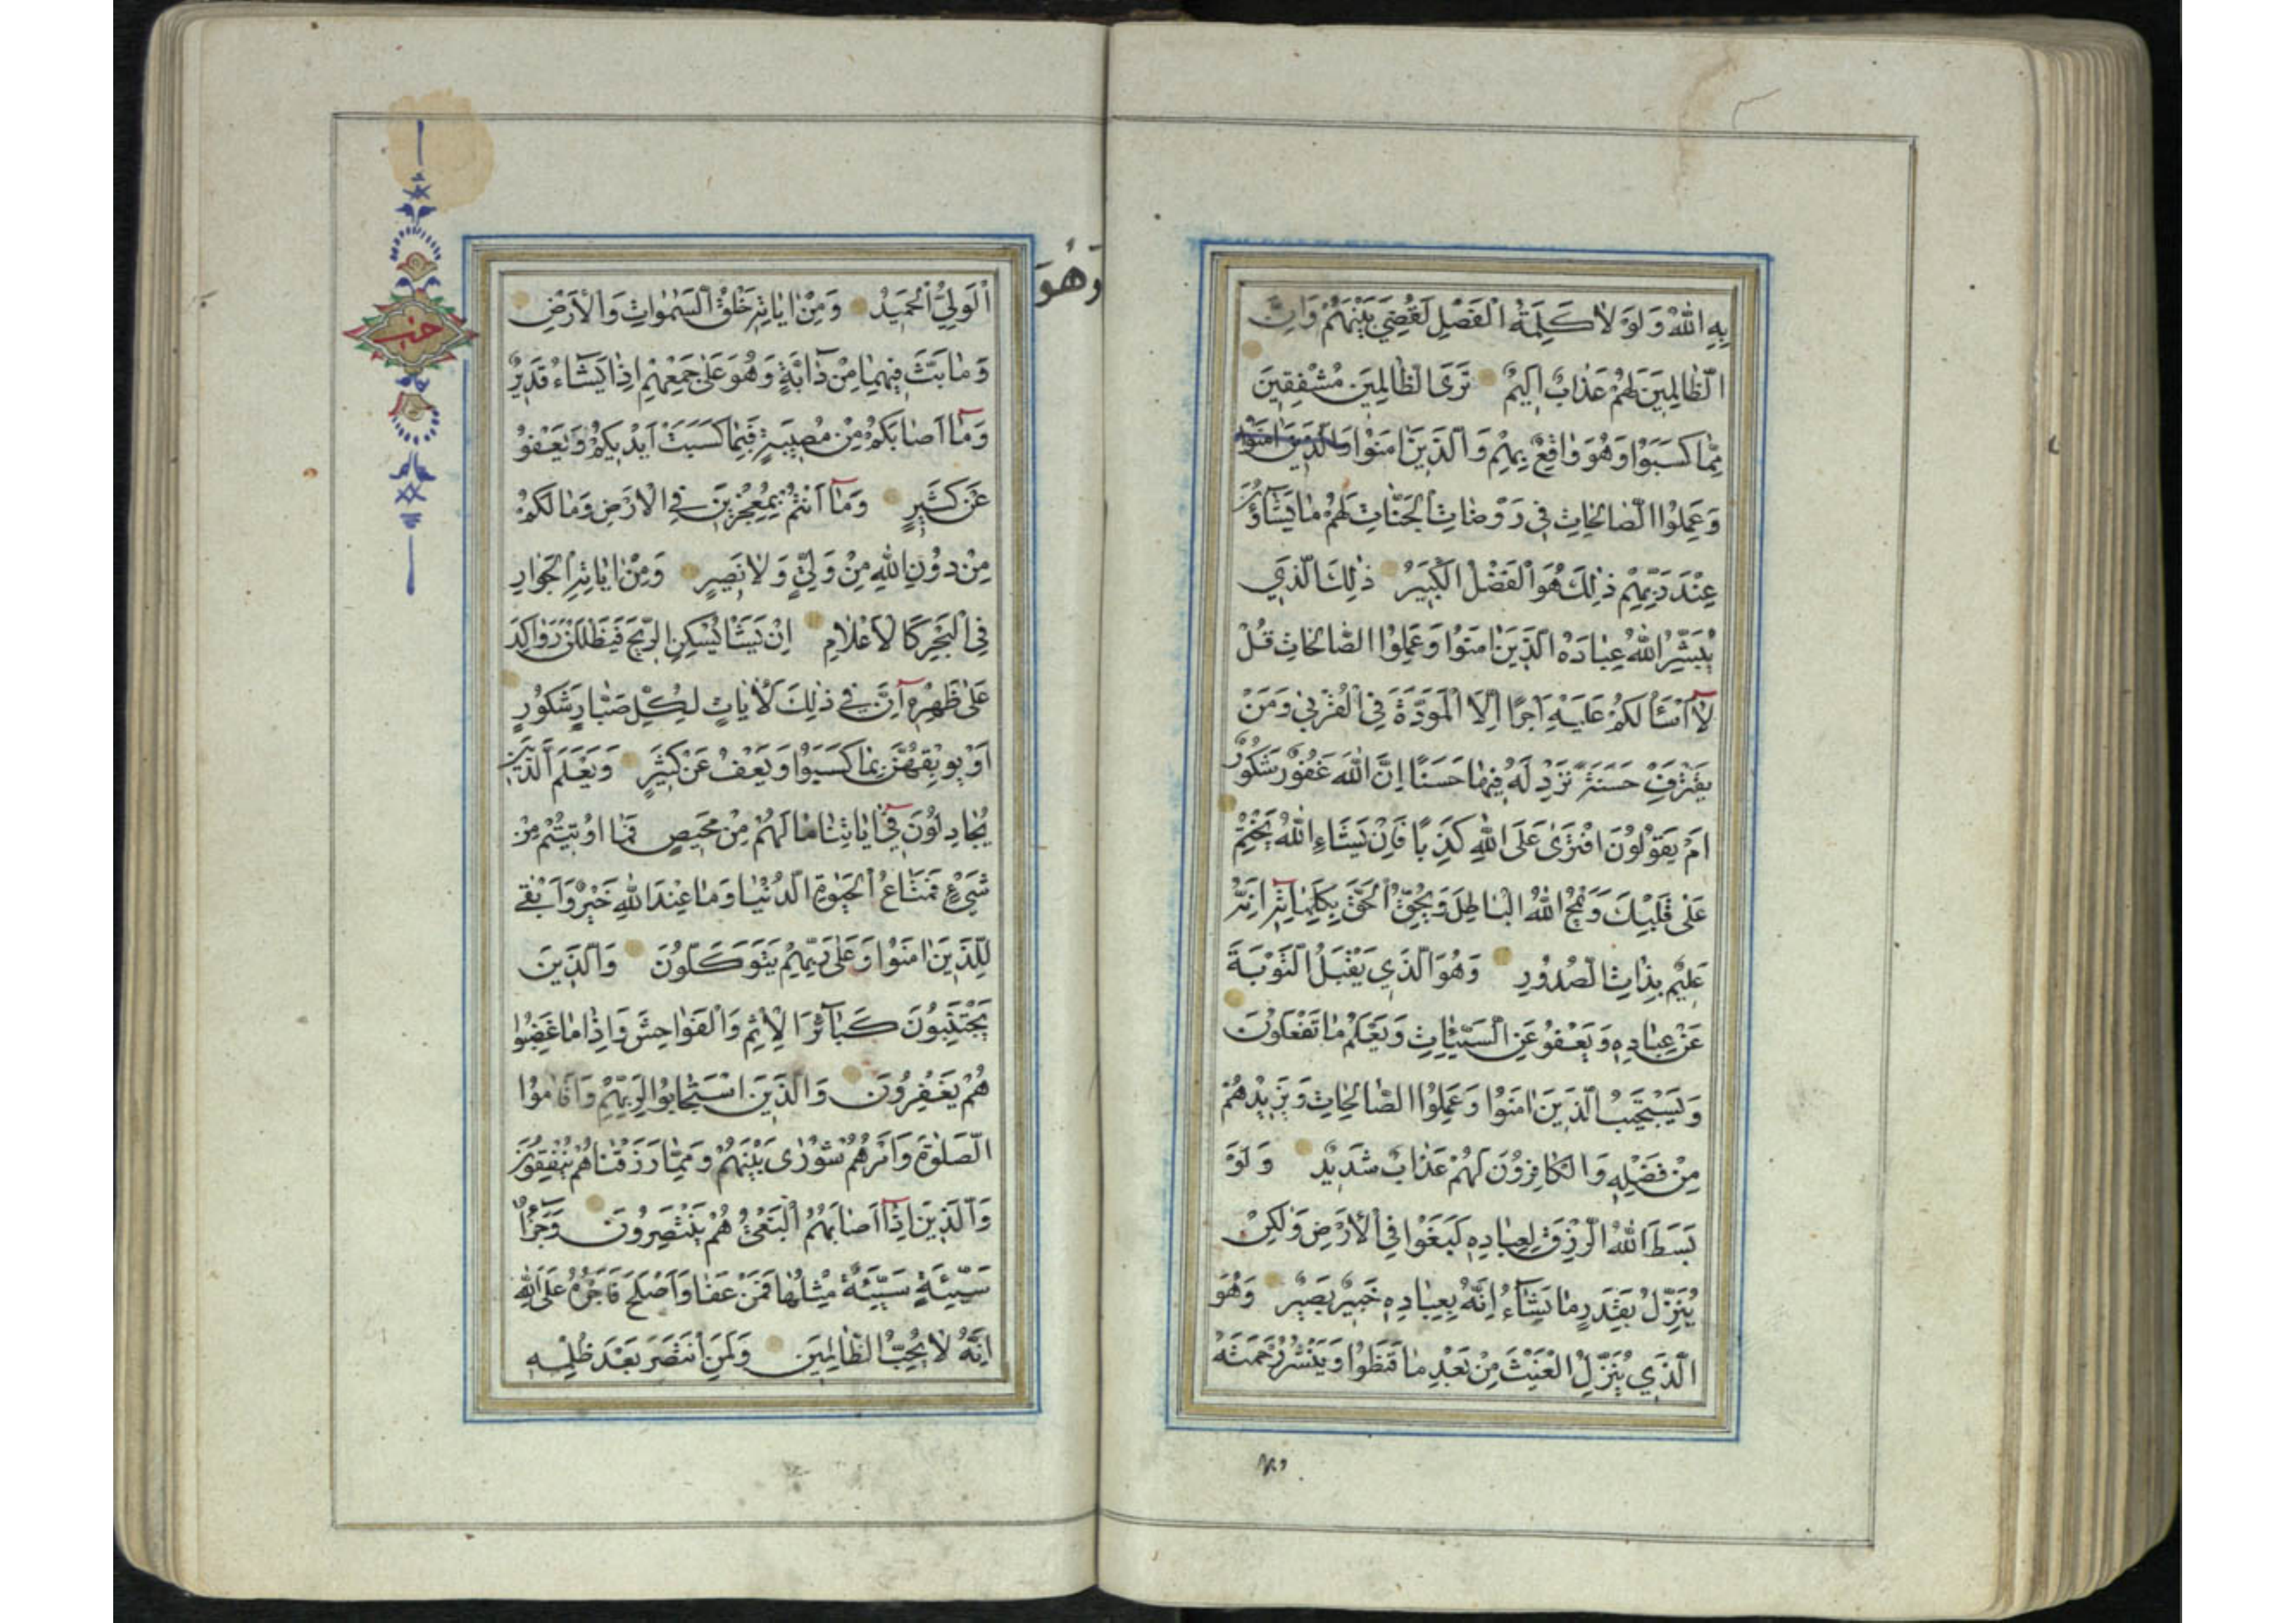 بِهِ اللهُ وَلَوْلاٰ كَلِمَةُ الْفَصْلِ لَقُضِيَ بَيْنَهُمْ وَاِنَّ
الظّٰالِمِينَ لَهُمْ عَذٰابٌ اَلِيمٌ تَرَى الظّٰالِمِينَ مُشْفِقِينَ
مِمّٰا كَسَبُوا وَهُوَ وٰاقِعٌ بِهِمْ وَالَّذِينَ اٰمَنُوا وَالَّذِينَ اٰمَنُوا
وَعَمِلُوا الصّٰالِحٰاتِ فِي رَوْضٰاتِ الْجَنّٰاتِ لَهُمْ مٰا يَشٰاؤُنَ
عِنْدَ رَبِّهِمْ ذٰلِكَ هُوَ الْفَضْلُ الْكَبِيرُ ذٰلِكَ الَّذِي
يُبَشِّرُ اللهُ عِبٰادَهُ الَّذِينَ اٰمَنُوا وَعَمِلُوا الصّٰالِحٰاتِ قُلْ
لاٰ اَسْأَلُكُمْ عَلَيْهِ اَجْرًا اِلَّا الْمَوَدَّةَ فِي الْقُرْبىٰ وَمَنْ
يَقْتَرِفْ حَسَنَةً نَزِدْ لَهُ فِيهٰا حَسَنًا اِنَّ اللهَ غَفُورٌ شَكُورٌ
اَمْ يَقُولُونَ افْتَرىٰ عَلَى اللهِ كَذِبًا فَاِنْ يَشَاءِ اللهُ يَخْتِمْ
عَلىٰ قَلْبِكَ وَيَمْحُ اللهُ الْبٰاطِلَ وَيُحِقُّ الْحَقَّ بِكَلِمٰاتِهِ اِنَّهُ
عَلِيمٌ بِذٰاتِ الصُّدُورِ وَهُوَ الَّذِي يَقْبَلُ التَّوْبَةَ
عَنْ عِبٰادِهِ وَيَعْفُو عَنِ السَّيِّئٰاتِ وَيَعْلَمُ مٰا تَفْعَلُونَ
وَيَسْتَجِيبُ الَّذِينَ اٰمَنُوا وَعَمِلُوا الصّٰالِحٰاتِ وَيَزِيدُهُمْ
مِنْ فَضْلِهِ وَالْكٰافِرُونَ لَهُمْ عَذٰابٌ شَدِيدٌ وَلَوْ
بَسَطَ اللهُ الرِّزْقَ لِعِبٰادِهِ لَبَغَوْا فِي الْأَرْضِ وَلٰكِنْ
يُنَزِّلُ بِقَدَرٍ مٰا يَشٰاءُ اِنَّهُ بِعِبٰادِهِ خَبِيرٌ بَصِيرٌ وَهُوَ
الَّذِي يُنَزِّلُ الْغَيْثَ مِنْ بَعْدِ مٰا قَنَطُوا وَيَنْشُرُ رَحْمَتَهُ
وَهُوَ
الْوَلِيُّ الْحَمِيدُ وَمِنْ اٰيٰاتِهِ خَلْقُ السَّمٰوٰاتِ وَالْأَرْضِ
وَمٰا بَثَّ فِيهِمٰا مِنْ دٰابَّةٍ وَهُوَ عَلىٰ جَمْعِهِمْ اِذٰا يَشٰاءُ قَدِيرٌ
وَمٰا اَصٰابَكُمْ مِنْ مُصِيبَةٍ فَبِمٰا كَسَبَتْ اَيْدِيكُمْ وَيَعْفُو
عَنْ كَثِيرٍ وَمٰا اَنْتُمْ بِمُعْجِزِينَ فِي الْأَرْضِ وَمٰا لَكُمْ
مِنْ دُونِ اللهِ مِنْ وَلِيٍّ وَلاٰ نَصِيرٍ وَمِنْ اٰيٰاتِهِ الْجَوٰارِ
فِي الْبَحْرِ كَالْأَعْلاٰمِ اِنْ يَشَأْ يُسْكِنِ الرِّيحَ فَيَظْلَلْنَ رَوٰاكِدَ
عَلىٰ ظَهْرِهِ اِنَّ فِي ذٰلِكَ لَأٰيٰاتٍ لِكُلِّ صَبّٰارٍ شَكُورٍ
اَوْ يُوبِقْهُنَّ بِمٰا كَسَبُوا وَيَعْفُ عَنْ كَثِيرٍ وَيَعْلَمَ الَّذِينَ
يُجٰادِلُونَ فِي اٰيٰاتِنٰا مٰا لَهُمْ مِنْ مَحِيصٍ فَمٰا اُوتِيتُمْ مِنْ
شَيْءٍ فَمَتٰاعُ الْحَيٰوةِ الدُّنْيٰا وَمٰا عِنْدَ اللهِ خَيْرٌ وَاَبْقىٰ
لِلَّذِينَ اٰمَنُوا وَعَلىٰ رَبِّهِمْ يَتَوَكَّلُونَ وَالَّذِينَ
يَجْتَنِبُونَ كَبٰائِرَ الْإِثْمِ وَالْفَوٰاحِشَ وَاِذٰا مٰا غَضِبُوا
هُمْ يَغْفِرُونَ وَالَّذِينَ اسْتَجٰابُوا لِرَبِّهِمْ وَاَقٰامُوا
الصَّلٰوةَ وَاَمْرُهُمْ شُورىٰ بَيْنَهُمْ وَمِمّٰا رَزَقْنٰاهُمْ يُنْفِقُونَ
وَالَّذِينَ اِذٰا اَصٰابَهُمُ الْبَغْيُ هُمْ يَنْتَصِرُونَ وَجَزٰاءُ
سَيِّئَةٍ سَيِّئَةٌ مِثْلُهٰا فَمَنْ عَفٰا وَاَصْلَحَ فَاَجْرُهُ عَلَى اللهِ
اِنَّهُ لاٰ يُحِبُّ الظّٰالِمِينَ وَلَمَنِ انْتَصَرَ بَعْدَ ظُلْمِهِ